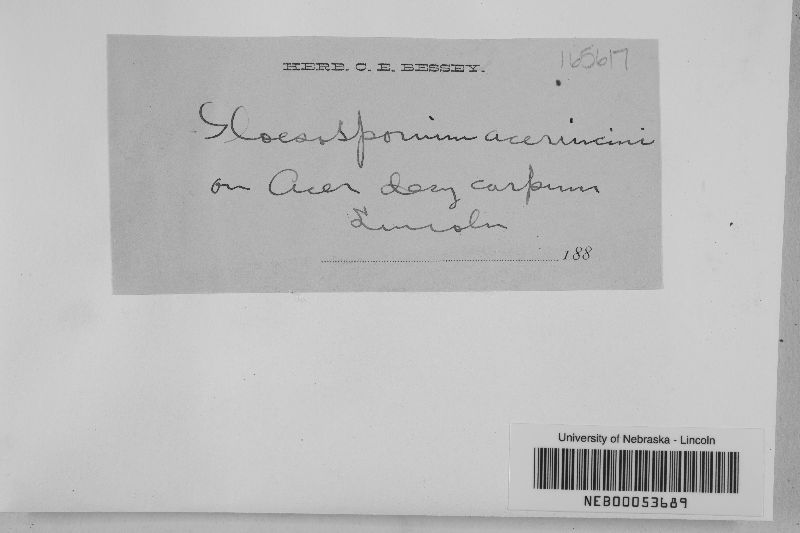 HERB. C. E. BESSEY.
165617
Gloeosporium acerinum
on Acer dasycarpum
Lincoln
188
University of Nebraska - Lincoln
NEB00053689